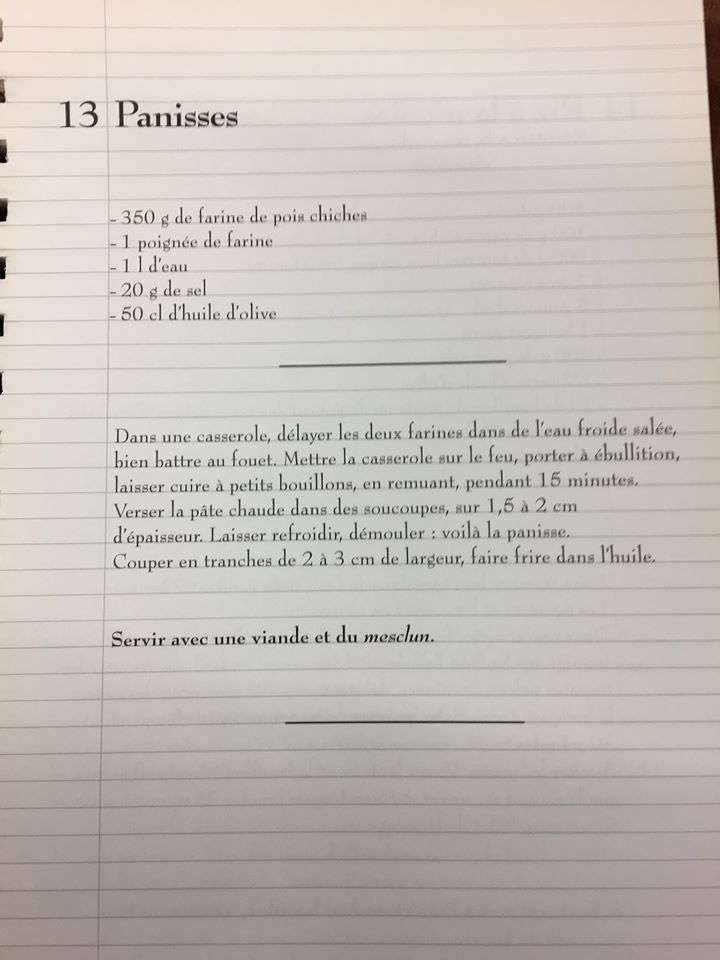 13 Panisses
- 350 g de farine de pois chiches
- 1 poignée de farine
- 1 l d'eau
- 20 g de sel
- 50 cl d'huile d'olive
Dans une casserole, délayer les deux farines dans de l'eau froide salée,
bien battre au fouet. Mettre la casserole sur le feu, porter à ébullition,
laisser cuire à petits bouillons, en remuant, pendant 15 minutes.
Verser la pâte chaude dans des soucoupes, sur 1,5 à 2 cm
d'épaisseur. Laisser refroidir, démouler : voilà la panisse.
Couper en tranches de 2 à 3 cm de largeur, faire frire dans l'huile.
Servir avec une viande et du mesclun.